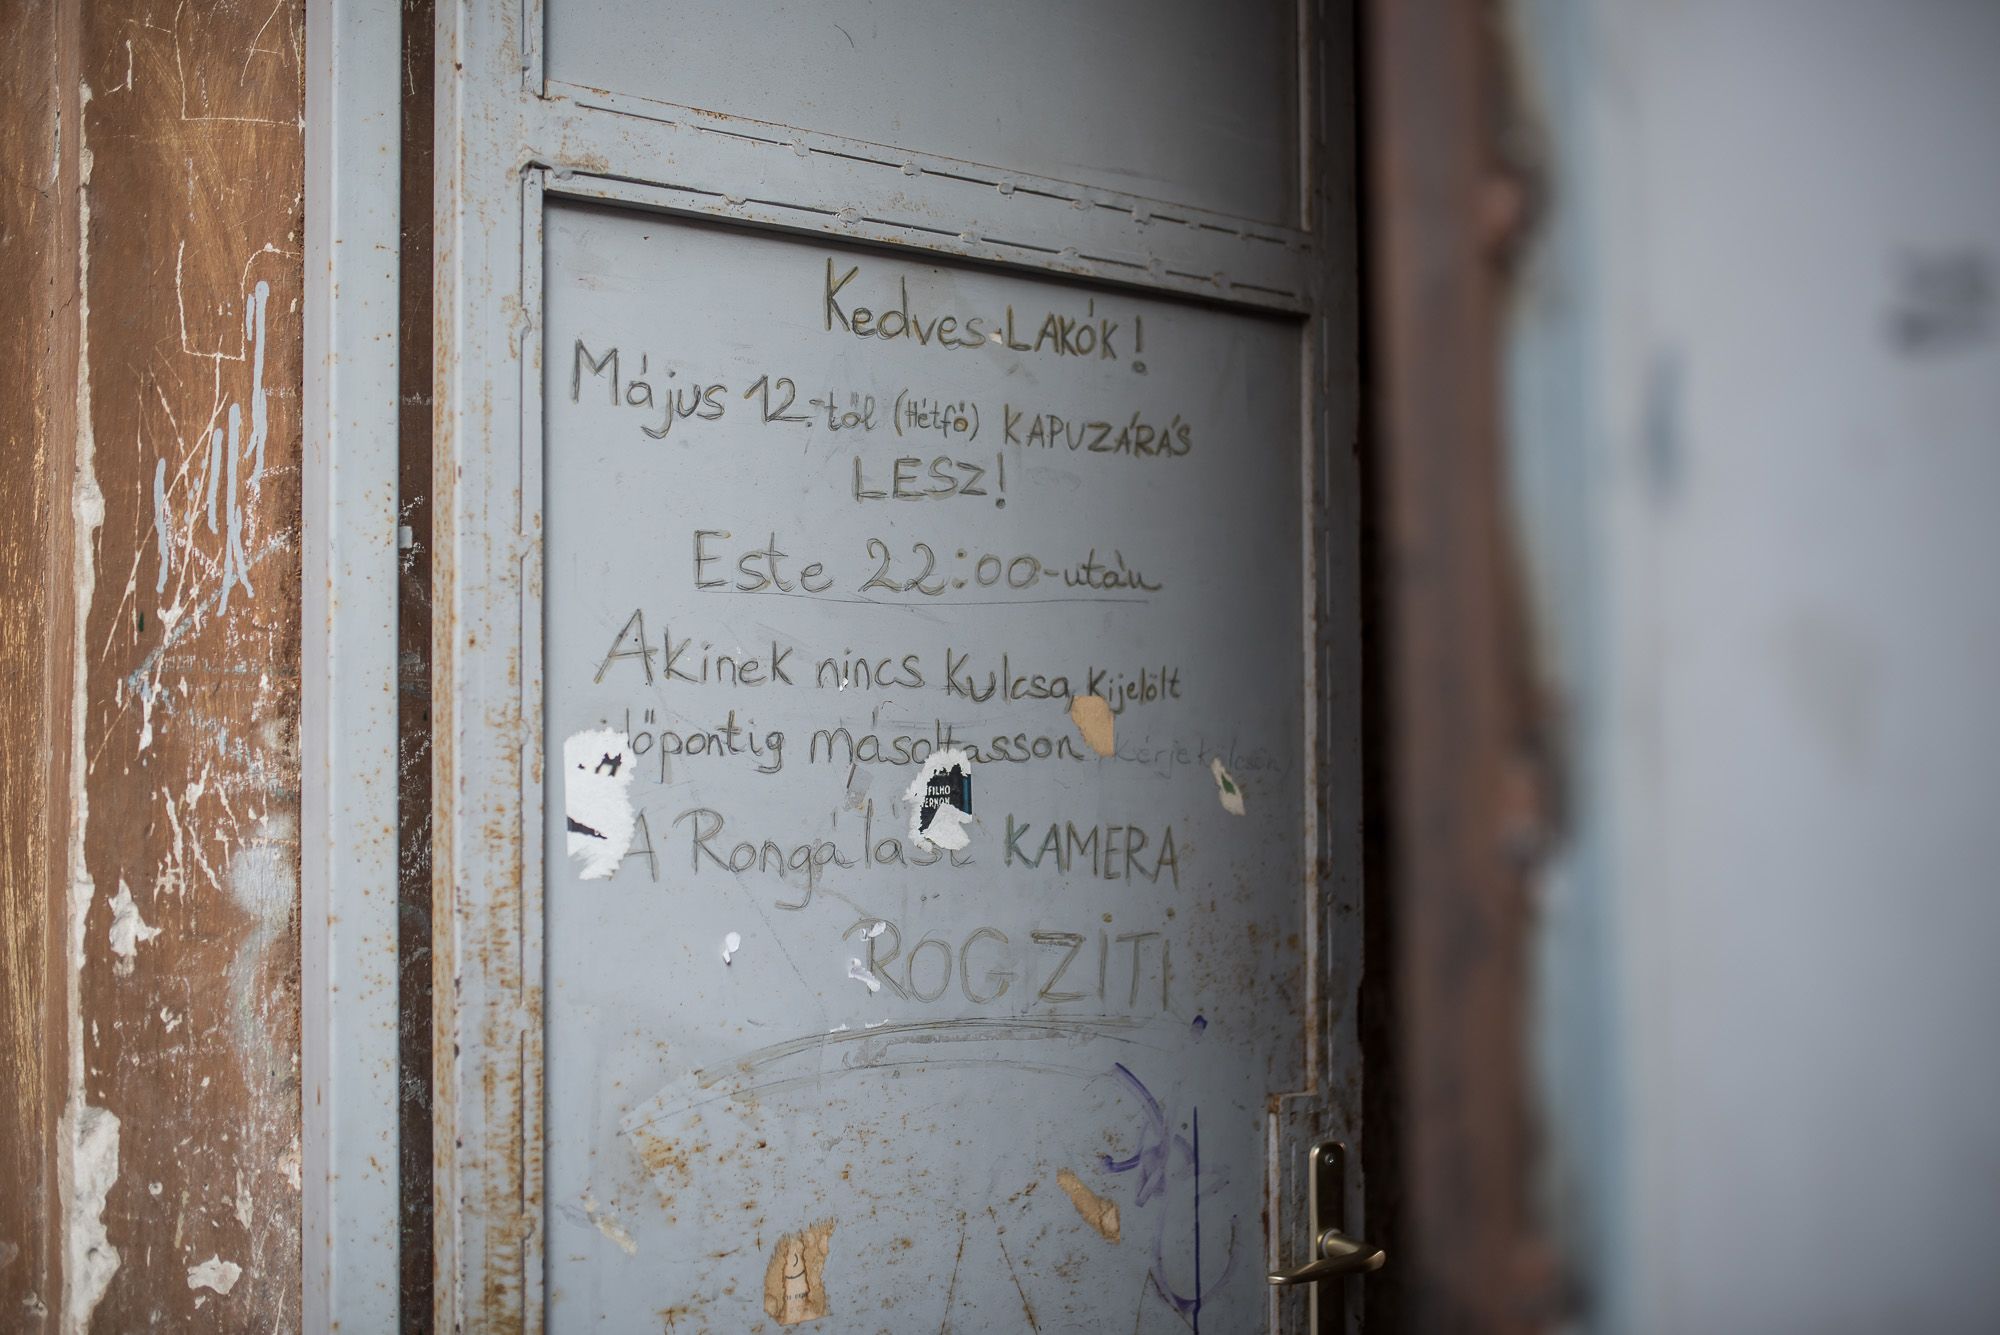 Kedves LAKÓK!
Május 12.-től (Hétfő) KAPUZÁRÁS
LESZ!
Este 22:00-után
Akinek nincs kulcsa, kijelölt
időpontig másoltasson kérje
A Rongálást KAMERA
ROGZITI